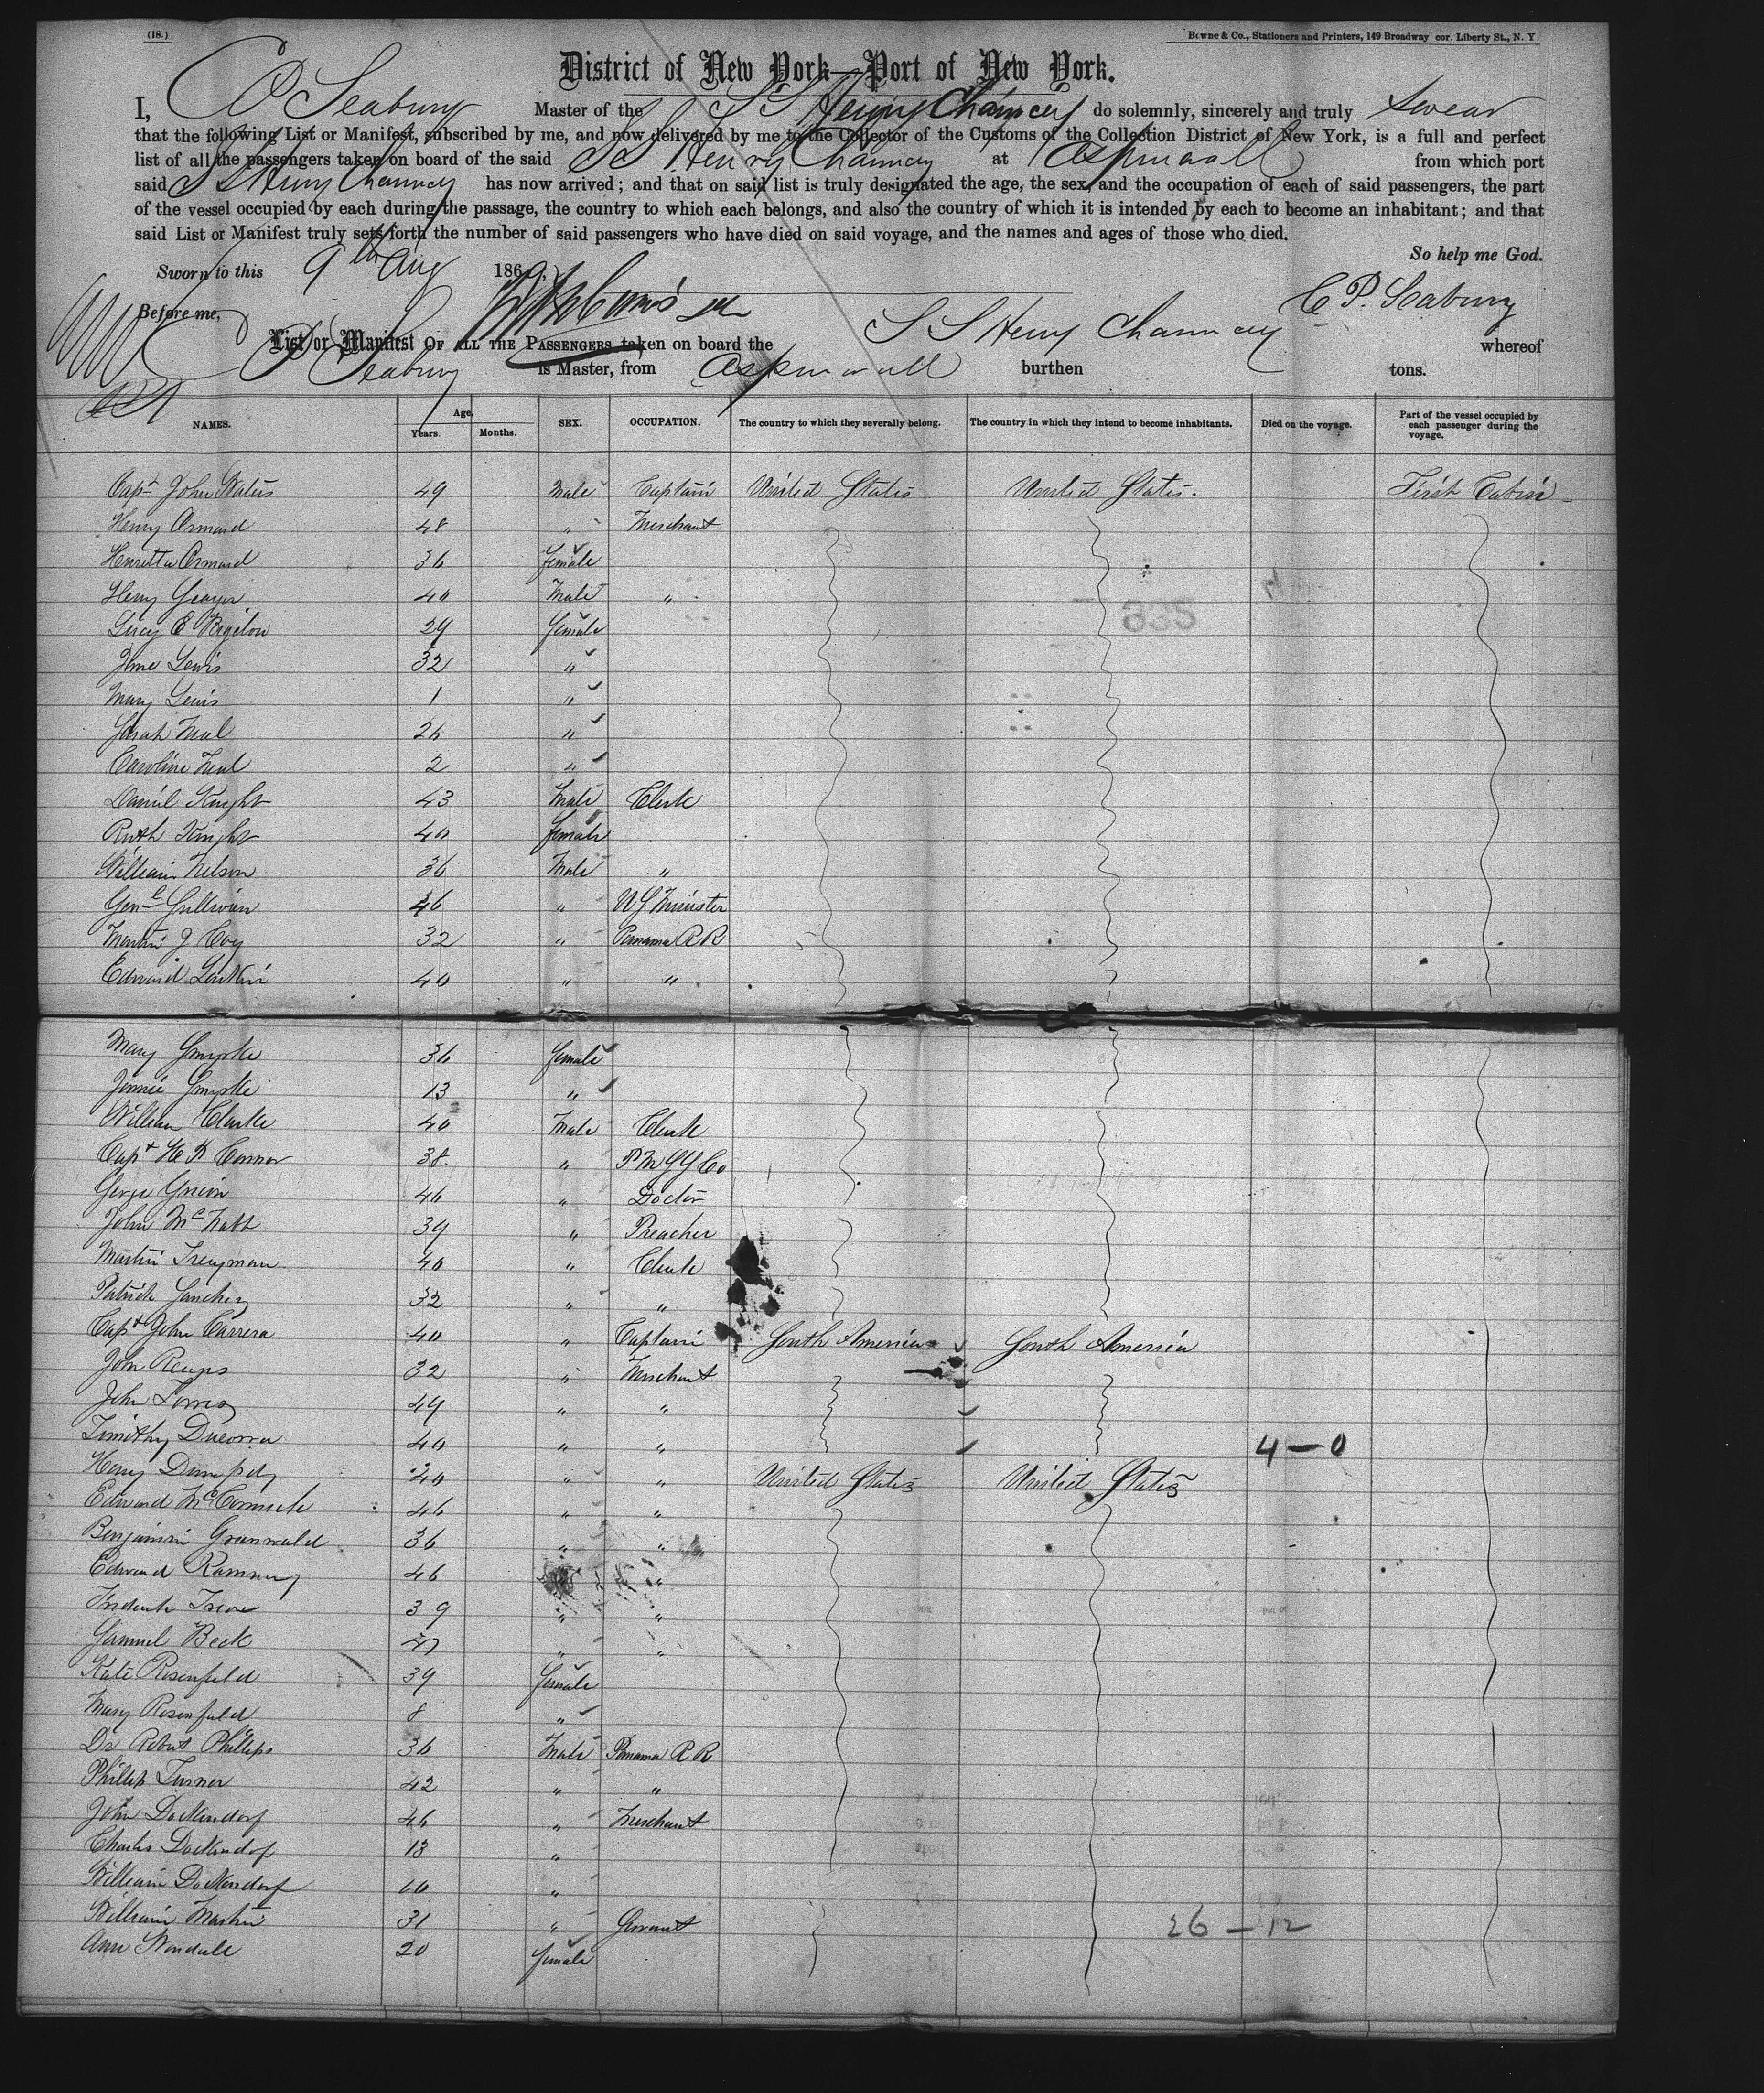 (18.)
Bowne & Co., Stationers and Printers, 149 Broadway cor. Liberty St., N. Y
District of New York—Port of New York.
I, C P Seabury Master of the S S Henry Chauncey do solemnly, sincerely and truly swear
that the following List or Manifest, subscribed by me, and now delivered by me to the Collector of the Customs of the Collection District of New York, is a full and perfect
list of all the passengers taken on board of the said S S Henry Chauncey at Aspinwall from which port
said S S Henry Chauncey has now arrived; and that on said list is truly designated the age, the sex, and the occupation of each of said passengers, the part
of the vessel occupied by each during the passage, the country to which each belongs, and also the country of which it is intended by each to become an inhabitant; and that
said List or Manifest truly sets forth the number of said passengers who have died on said voyage, and the names and ages of those who died.
So help me God.
Sworn to this 9th Aug 1869,
C P. Seabury
Before me,
List or Manifest OF ALL THE PASSENGERS taken on board the S S Henry Chauncey whereof
C P Seabury is Master, from Aspinwall burthen tons.
NAMES. Age. Years. Months. SEX. OCCUPATION. The country to which they severally belong. The country in which they intend to become inhabitants. Died on the voyage. Part of the vessel occupied by each passenger during the voyage.
Capt John Waters 49 Male Captain United States United States. First Cabin
Henry Ormand 48 " Merchant
Henretta Ormand 36 Female
Henry Geayer 40 Male "
Lucy E Bigelow 29 Female
Jane Lewis 32 "
Mary Lewis 1 "
Sarah Neal 26 "
Caroline Neal 2 "
Daniel Knight 43 Male Clerk
Ruth Knight 40 Female
William Nelson 36 Male "
Genl Sullivan 46 " U S Minister
Martin J Coy 32 " Panama R R
Edward Larkin 40 " "
Mary Smyske 36 Female
Jennie Smyske 13 "
William Clarke 40 Male Clerk
Capt Connor 38. " P M S S Co
George Green 46 " Doctor
John McNabb 39 " Preacher
Martin Treyman 40 " Clerk
Patrick Sanchez 32 " "
Capt John Carrera 40 " Captain South America South America
John 32 " Merchant
John Torres 49 " "
Timothy 40 " " 4 – 0
Henry Dempsey 40 " " United States United States
Edward McCormick 46 " "
Benjamin Grunwald 36 " "
Edward 46 " "
Frederick 39 " "
Samuel Beck 47 " "
Kate Rosenfeld 39 Female
Mary Rosenfeld 8 "
Dr Robert Phillips 36 Male Panama R R
Phillip Turner 42 " "
John Dockendorf 46 " Merchant
Charles Dockendof 13 "
William Dockendorf 10 "
William Martin 31 " Servant 26 – 12
Ann 20 Female